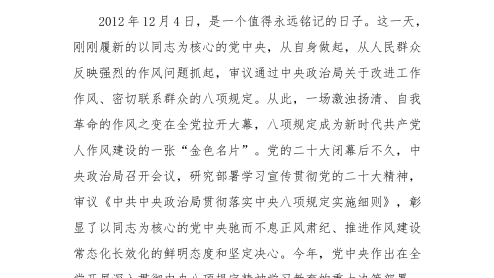 2012 年 12 月 4 日，是一个值得永远铭记的日子。这一天，
刚刚履新的以同志为核心的党中央，从自身做起，从人民群众
反映强烈的作风问题抓起，审议通过中央政治局关于改进工作
作风、密切联系群众的八项规定。从此，一场激浊扬清、自我
革命的作风之变在全党拉开大幕，八项规定成为新时代共产党
人作风建设的一张“金色名片”。党的二十大闭幕后不久，中
央政治局召开会议，研究部署学习宣传贯彻党的二十大精神，
审议《中共中央政治局贯彻落实中央八项规定实施细则》，彰
显了以同志为核心的党中央驰而不息正风肃纪、推进作风建设
常态化长效化的鲜明态度和坚定决心。今年，党中央作出在全
党开展深入贯彻中央八项规定精神学习教育的重大决策部署，